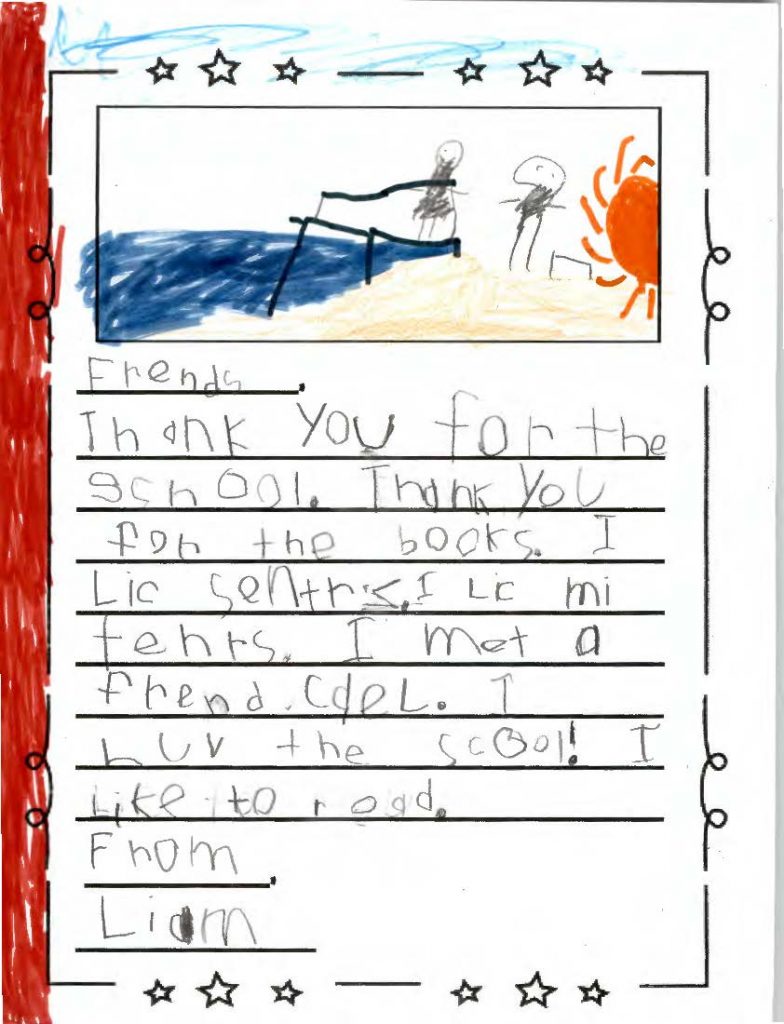 Frends,
Thank you for the
school. Thank you
for the books. I
Lic sentrs. I Lic mi
fehrs. I met a
frend. CdeL. I
Luv the scool! I
Like to read.
From,
Liam